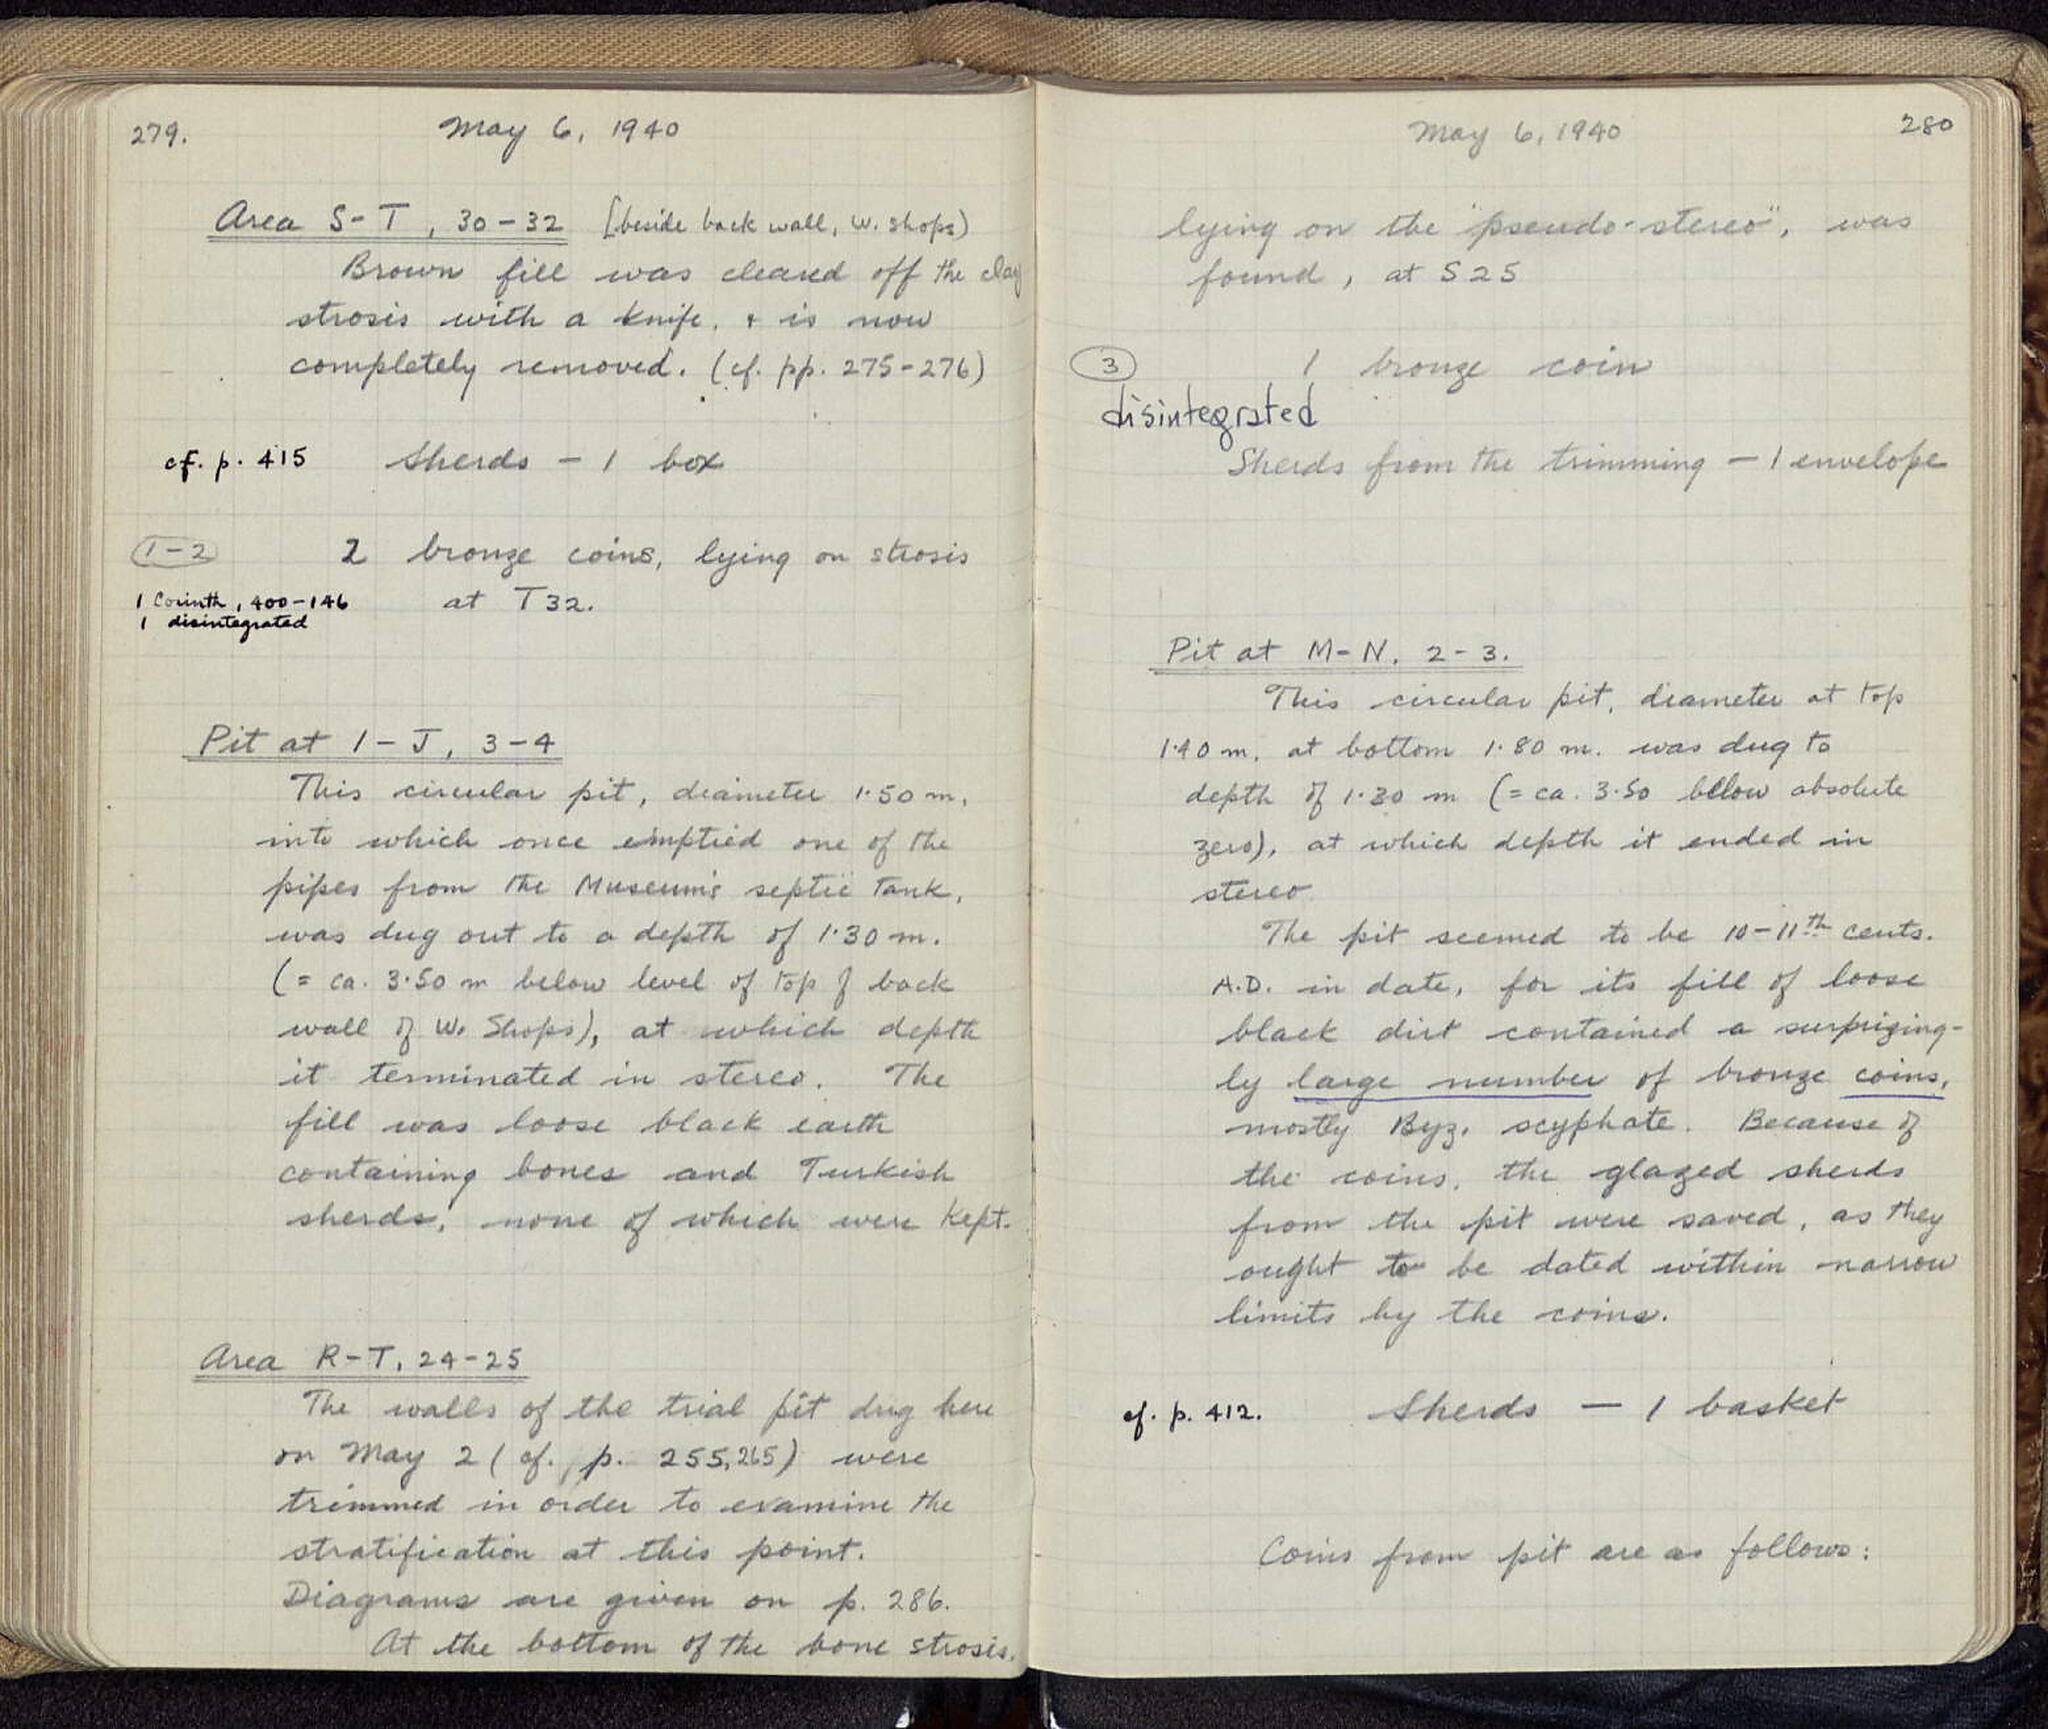 279.
May 6, 1940
Area S-T, 30-32 [beside back wall, W. Shops)
Brown fill was cleared off the clay
strosis with a knife, + is now
completely removed. (cf. pp. 275-276)
cf. p. 415 Sherds - 1 box
1-2 2 bronze coins, lying on strosis
1 Corinth, 400-146 at T32.
1 disintegrated
Pit at I-J, 3-4
This circular pit, diameter 1.50 m,
into which once emptied one of the
pipes from the Museum's septic tank,
was dug out to a depth of 1.30 m.
(= ca. 3.50 m below level of top of back
wall of W. Shops), at which depth
it terminated in stereo. The
fill was loose black earth
containing bones and Turkish
sherds, none of which were kept.
Area R-T, 24-25
The walls of the trial pit dug here
on May 2 (cf. p. 255, 265) were
trimmed in order to examine the
stratification at this point.
Diagrams are given on p. 286.
At the bottom of the bone strosis,
May 6, 1940
280
lying on the "pseudo-stereo", was
found, at S25
3 1 bronze coin
disintegrated
Sherds from the trimming - 1 envelope
Pit at M-N, 2-3.
This circular pit, diameter at top
1.40 m, at bottom 1.80 m. was dug to
depth of 1.30 m (= ca. 3.50 below absolute
zero), at which depth it ended in
stereo
The pit seemed to be 10-11th cents.
A.D. in date, for its fill of loose
black dirt contained a surprizing-
ly large number of bronze coins,
mostly Byz. scyphate. Because of
the coins, the glazed sherds
from the pit were saved, as they
ought to be dated within narrow
limits by the coins.
cf. p. 412. Sherds - 1 basket
Coins from pit are as follows: